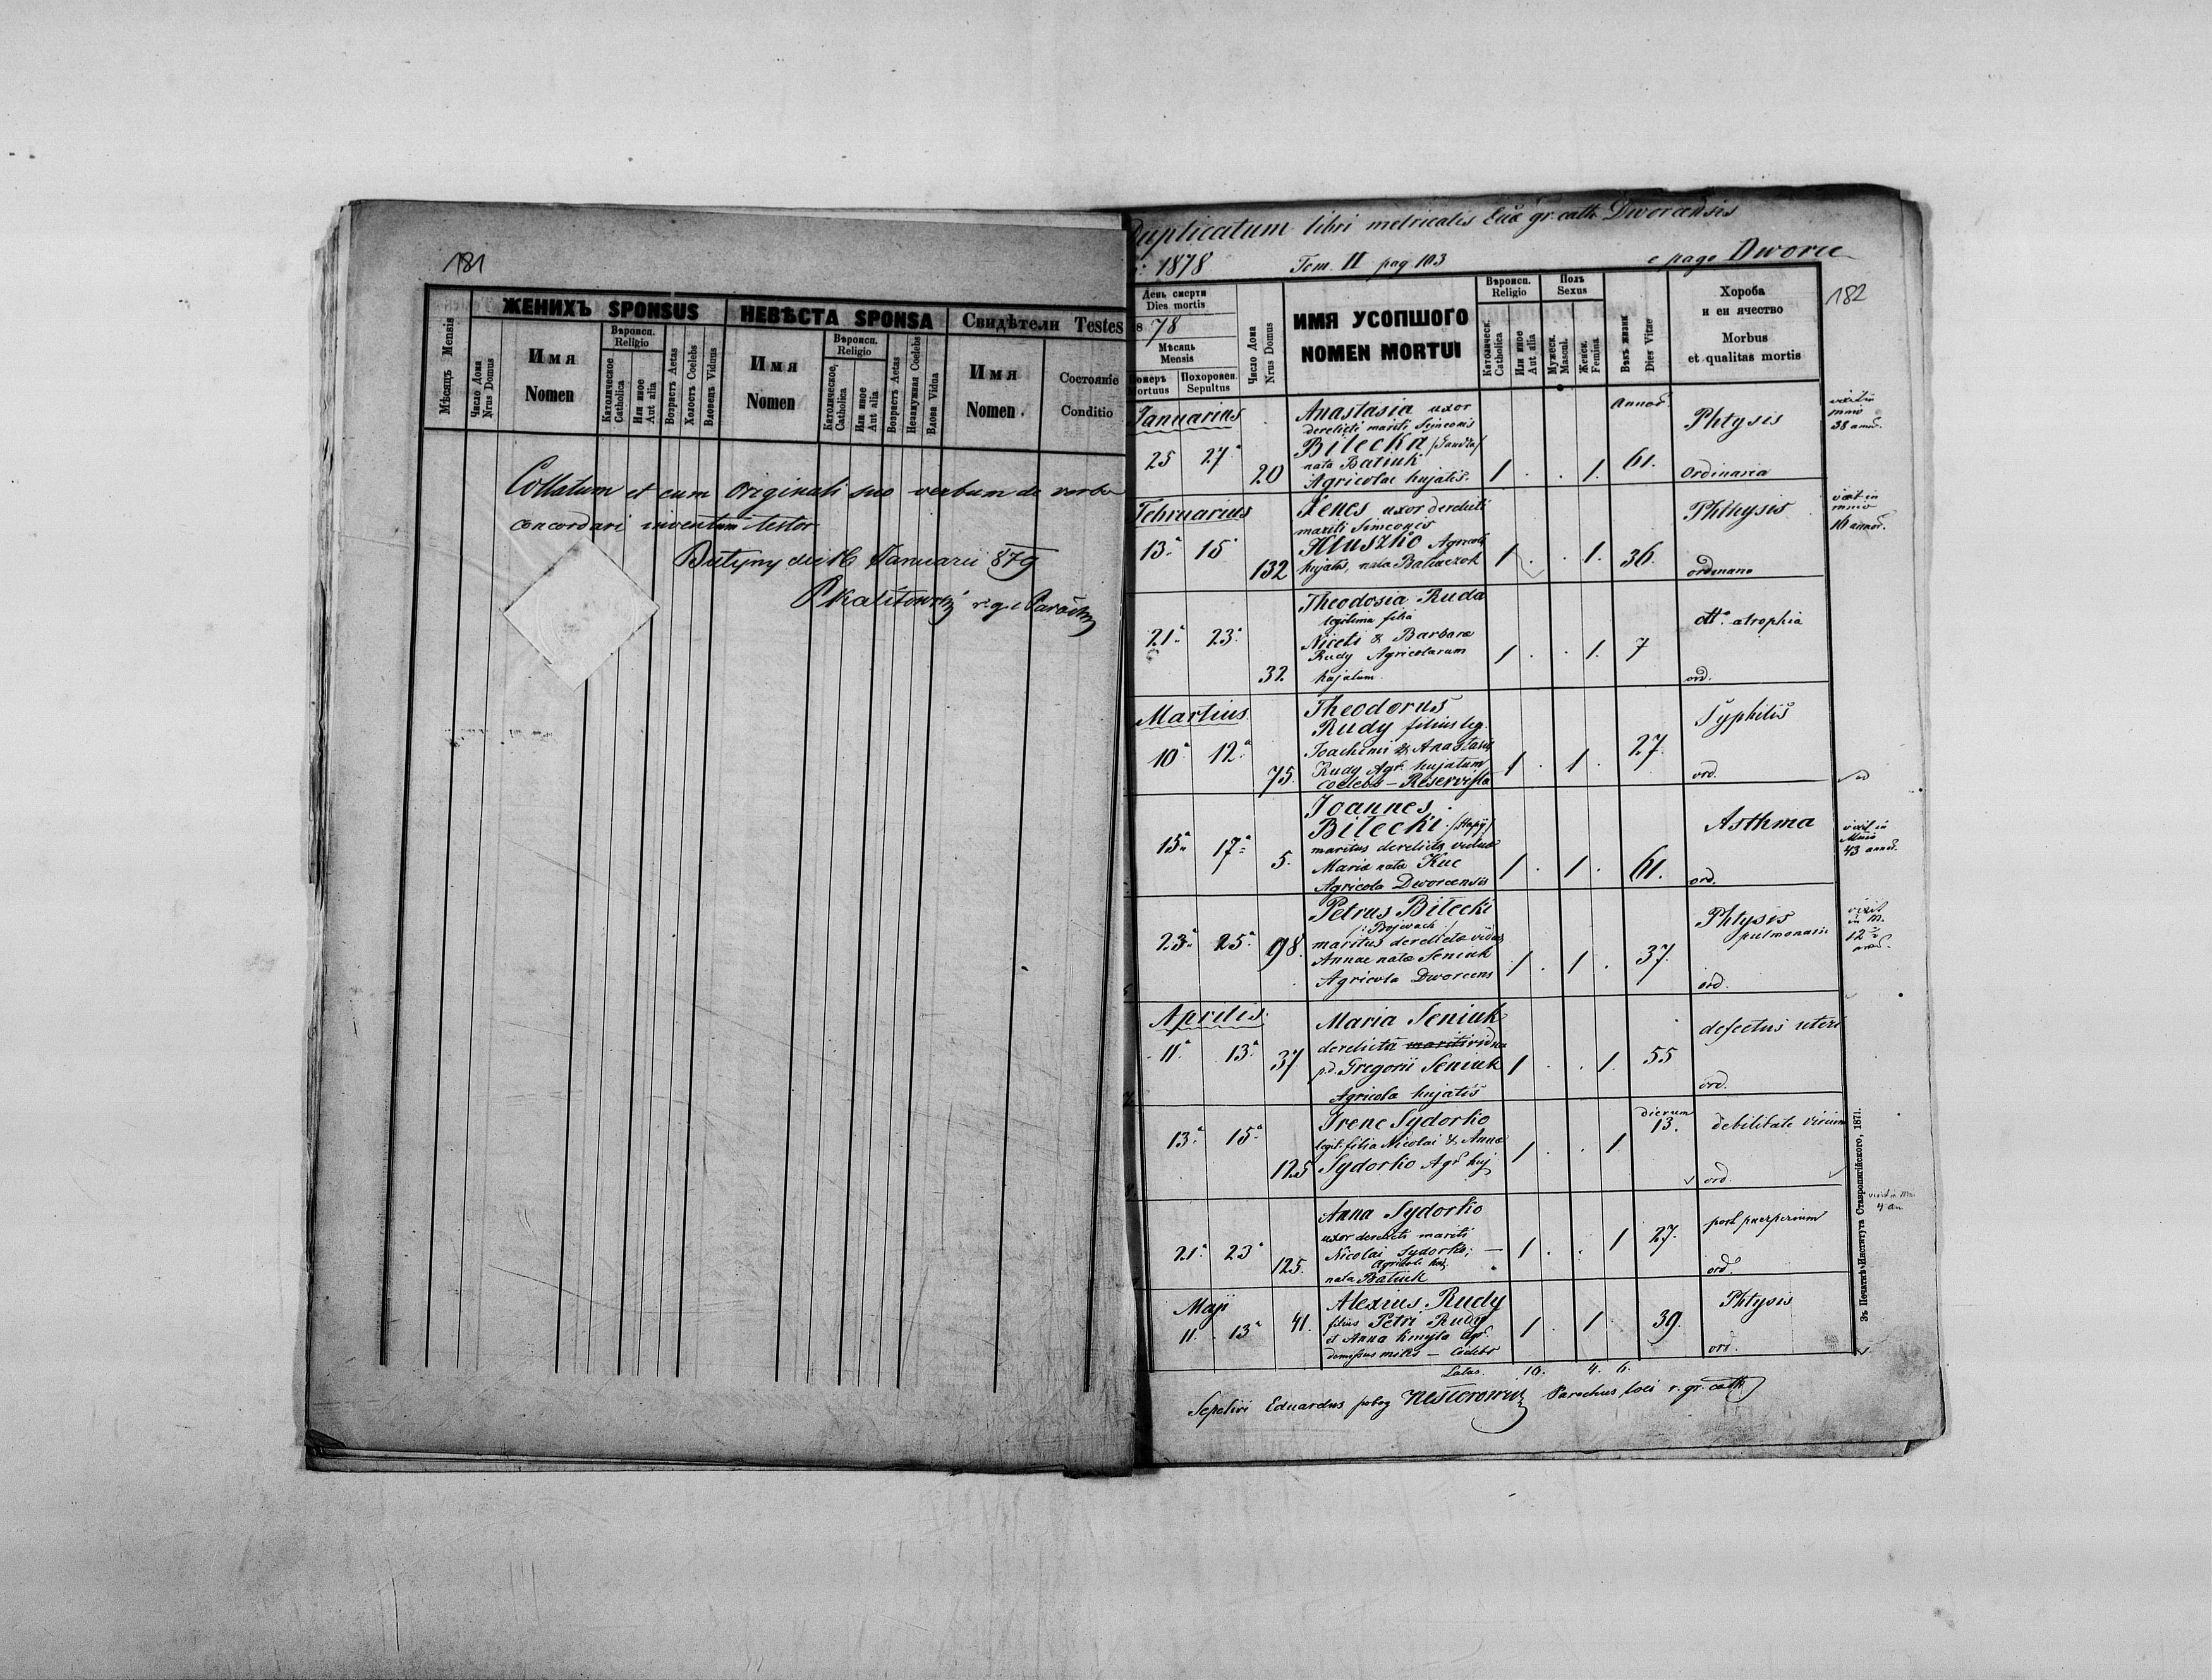 181
ЖЕНИХЪ SPONSUS
НЕВѢСТА SPONSA
Свидѣтели Testes
Мѣсяць Mensis
Число Дома
Nrus Domus
Имя
Nomen
Вѣроисп.
Religio
Католическое
Catholica
Или иное
Aut alia
Возрастъ Aetas
Холостъ Coelebs
Вдовецъ Viduus
Имя
Nomen
Вѣроисп.
Religio
Католическое,
Catholica
Или иное
Aut alia
Возрастъ Aetas
Незамужная Coelebs
Вдова Vidua
Имя
Nomen.
Состоянїе
Conditio
Collatum et cum originali suo verbum de verbo
concordari inventum testor
Butyny die 16 Januarii 879
Duplicatum libri metricalis Eccl. gr. cath. Dworcensis
1878 Tom. II pag 103 e pago Dworce
182
День смерти
Dies mortis
78
Мѣсяць
Mensis
Похоронен.
Sepultus
Число Дома
Nrus Domus
ИМЯ УСОПШОГО
NOMEN MORTUI
Вѣроисп.
Religio
Католическ.
Catholica
Или иное
Aut alia
Полъ
Sexus
Мужеск.
Mascul.
Женск.
Femina
Вѣкъ жизни
Dies Vitae
Хороба
и еи ячество
Morbus
et qualitas mortis
Januarius
25 27 20
Anastasia uxor
derelicti mariti Simeonis
Bilecka
nata Batiuk
Agricolae hujatis.
1 . . 1. annor. 61.
Phtysis
Ordinaria
38 annor.
Februarius
13. 15 132
Xenes uxor derelicti
mariti Simeonis
Kluszko Agricol
hujatis, nata Batiaczok
1 . . 1. 36.
Phthysis
ordinaria
16 annor.
21. 23. 32
Theodosia Ruda
legitima filia
Niceti & Barbara
Rudy Agricolarum
hujatum.
1 . . 1. 7
atrophia
ord.
Martius
10 12. 75.
Theodorus
Rudy filius leg.
Joachimi & Anastasia
Rudy Agr. hujatum
coelebs – Reservista
1 . 1 . 27.
Syphilis
ord.
15. 17. 5.
Joannes
Bilecki
maritus derelicta viduae
Maria nata Kuc
Agricola Dworcensis
1 . 1 . 61.
Asthma
ord.
vixit in
43 annor.
23. 25. 98.
Petrus Bilecki
maritus derelicta vidua
Annae nata Seniuk
Agricola Dworcens
1 . 1 . 37.
Phtysis
pulmonaris
ord.
vixit
in M.
12
Aprilis
11. 13. 37
Maria Seniuk
derelicta mariti vidua
p.d. Gregorii Seniuk
Agricola hujatis
1 . . 1. 55
defectus uteri
ord.
13. 15. 125
Irene Sydorko
legit. filia Nicolai & Anna
Sydorko Agr. huj
1 . . 1 dierum 13.
debilitate virium
ord.
21. 23 125.
Anna Sydorko
uxor derelicti mariti
Nicolai Sydorko; –
agricola huj.
nata Batiuk
1 . . 1 27.
post puerperium
ord.
Maji
11. 13 41.
Alexius Rudy
filius Petri Rudy
et Anna Kmyta Agr.
demissus miles – Coelebs
1 . 1 . 39.
Phtysis
ord.
Latus. 10. 4. 6.
Sepelivi Eduardus Nesterowicz Parochus loci r. gr. cath
Зъ Печатнѣ Института Ставропигїйского, 1871.